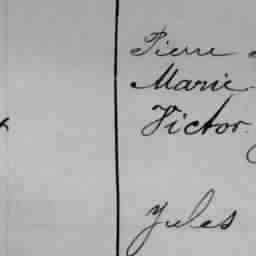 Pierre
Marie
Victor
Jules